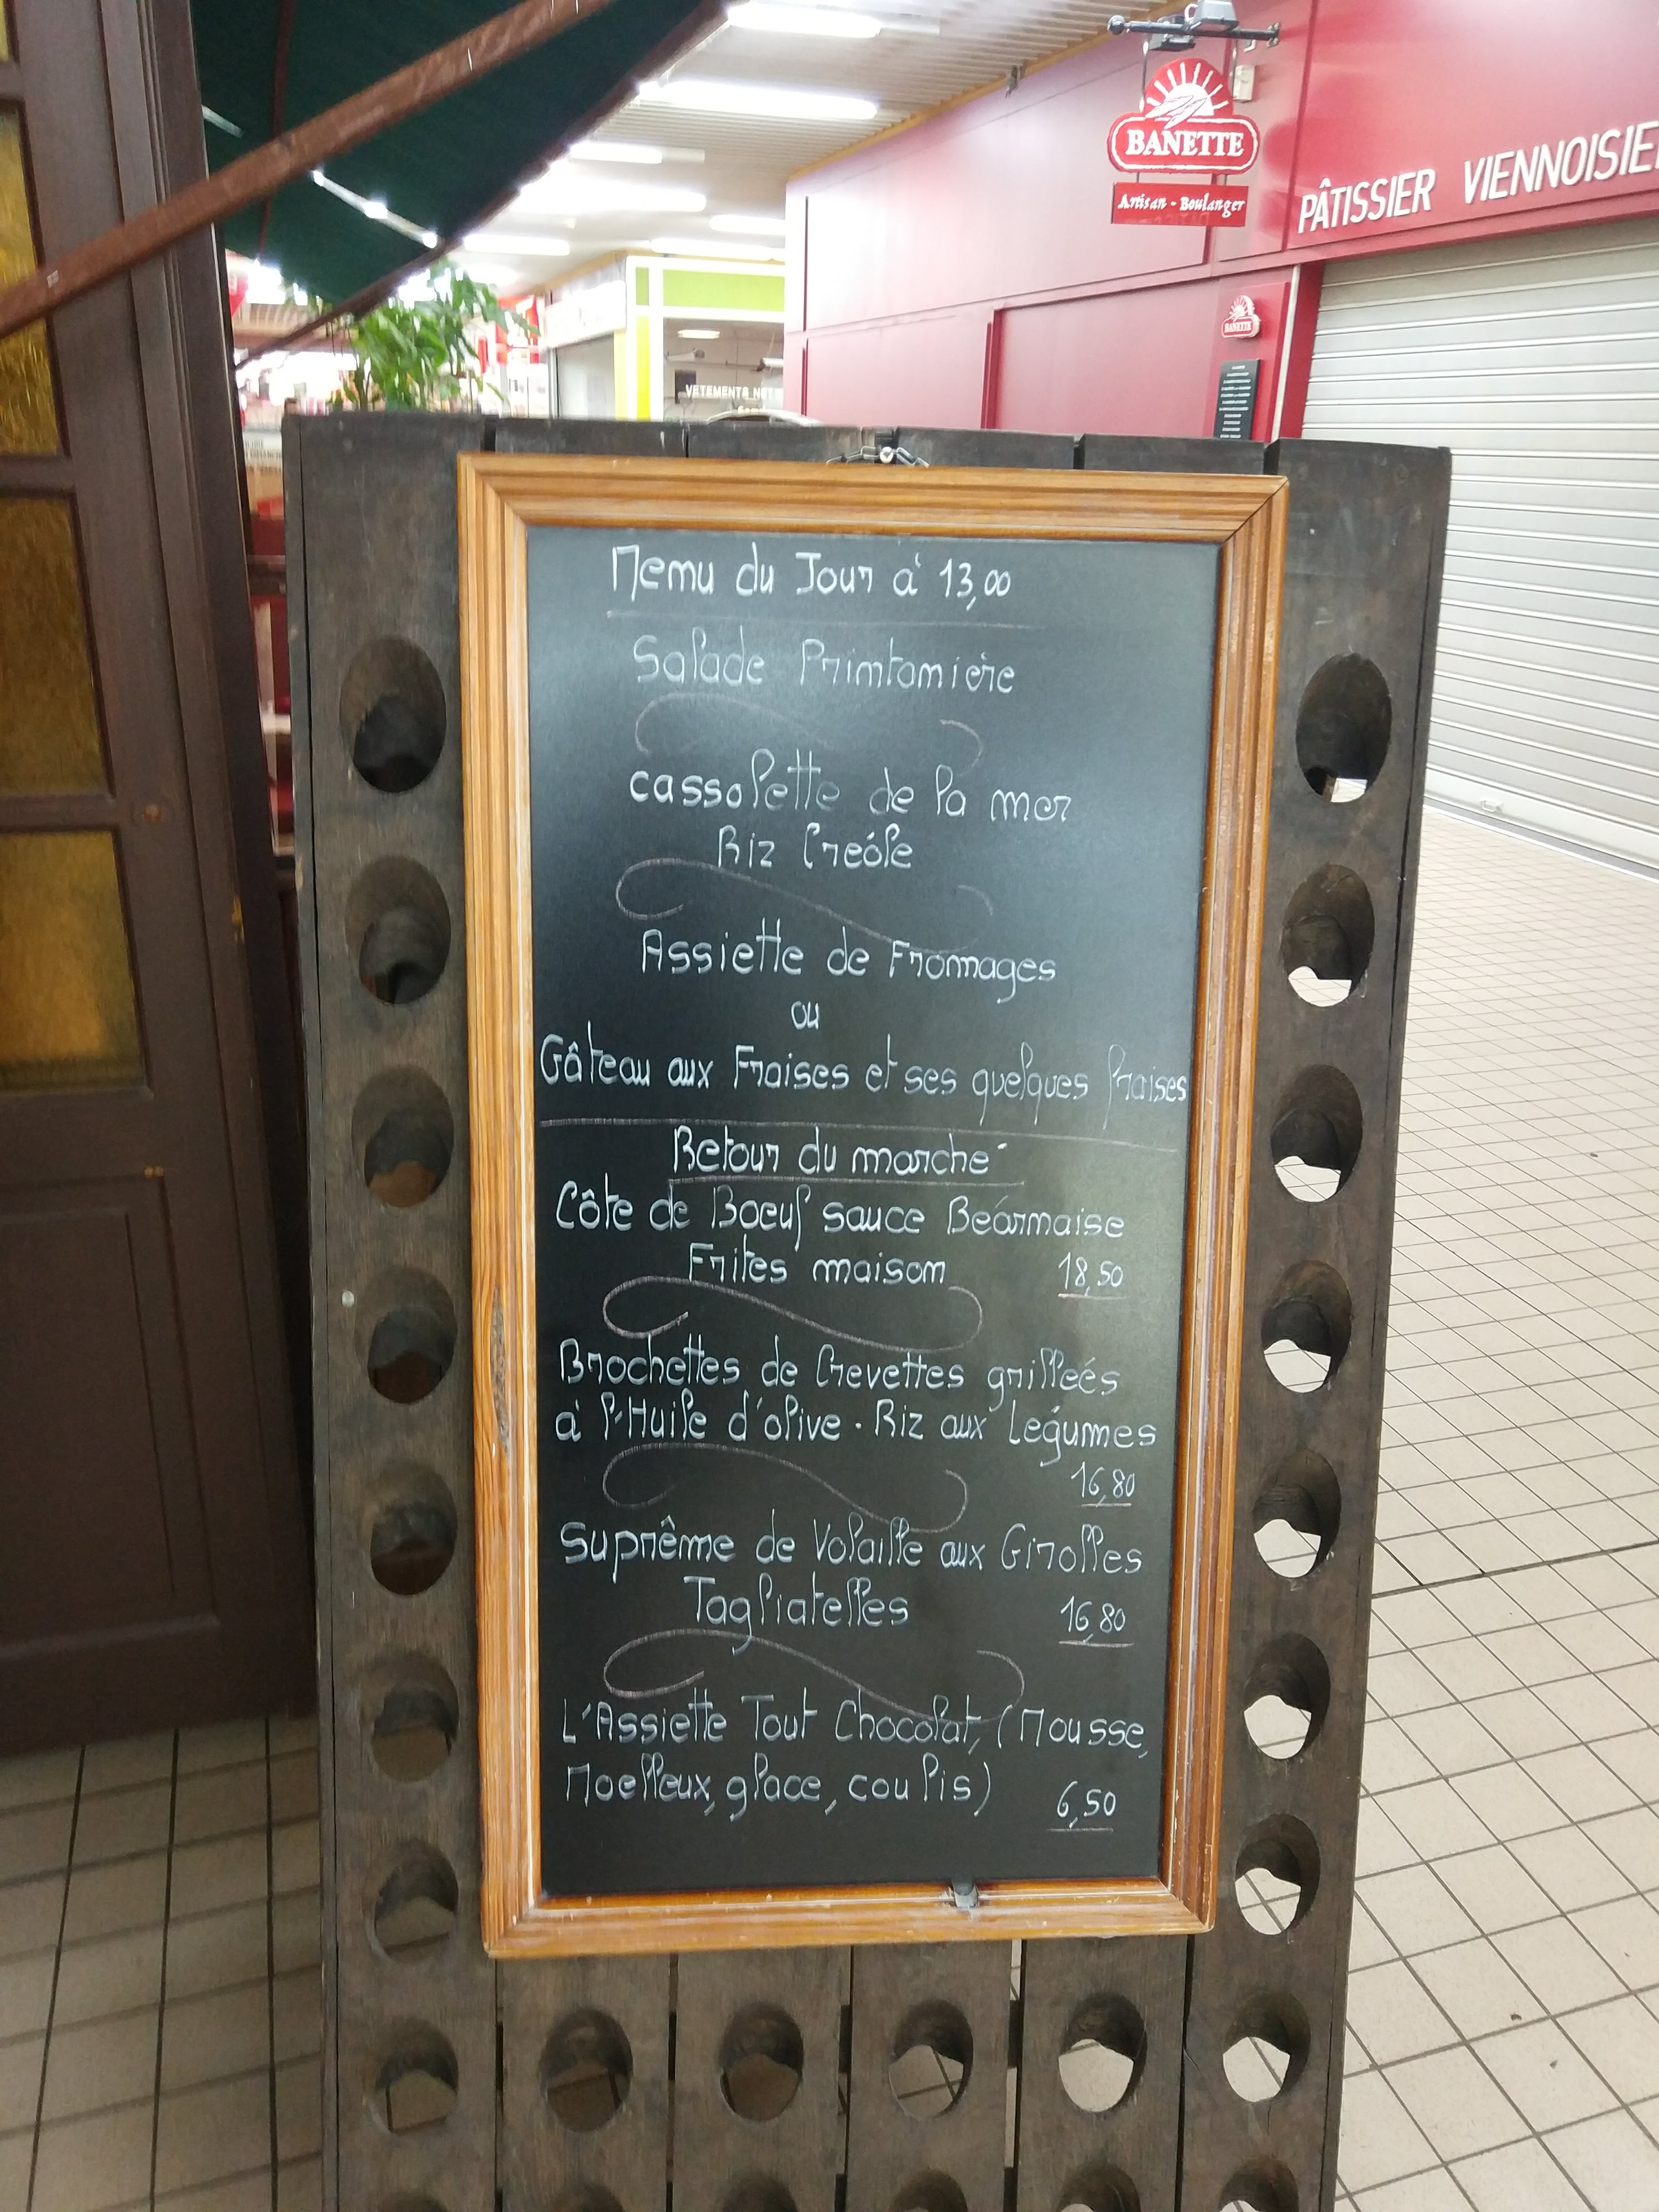 BANETTE
Artisan - Boulanger
PÂTISSIER VIENNOISIE
BANETTE
VETEMENTS
Menu du Jour à 13,00
Salade Printanière
cassolette de la mer
Riz Créole
Assiette de Fromages
ou
Gâteau aux Fraises et ses quelques fraises
Retour du marché
Côte de Boeuf sauce Béarnaise
Frites maison 18,50
Brochettes de Crevettes grilleés
à l'Huile d'olive - Riz aux Légumes
16,80
Suprême de Volaille aux Girolles
Tagliatelles 16,80
L'Assiette Tout Chocolat, (Mousse,
Moelleux, glace, coulis) 6,50